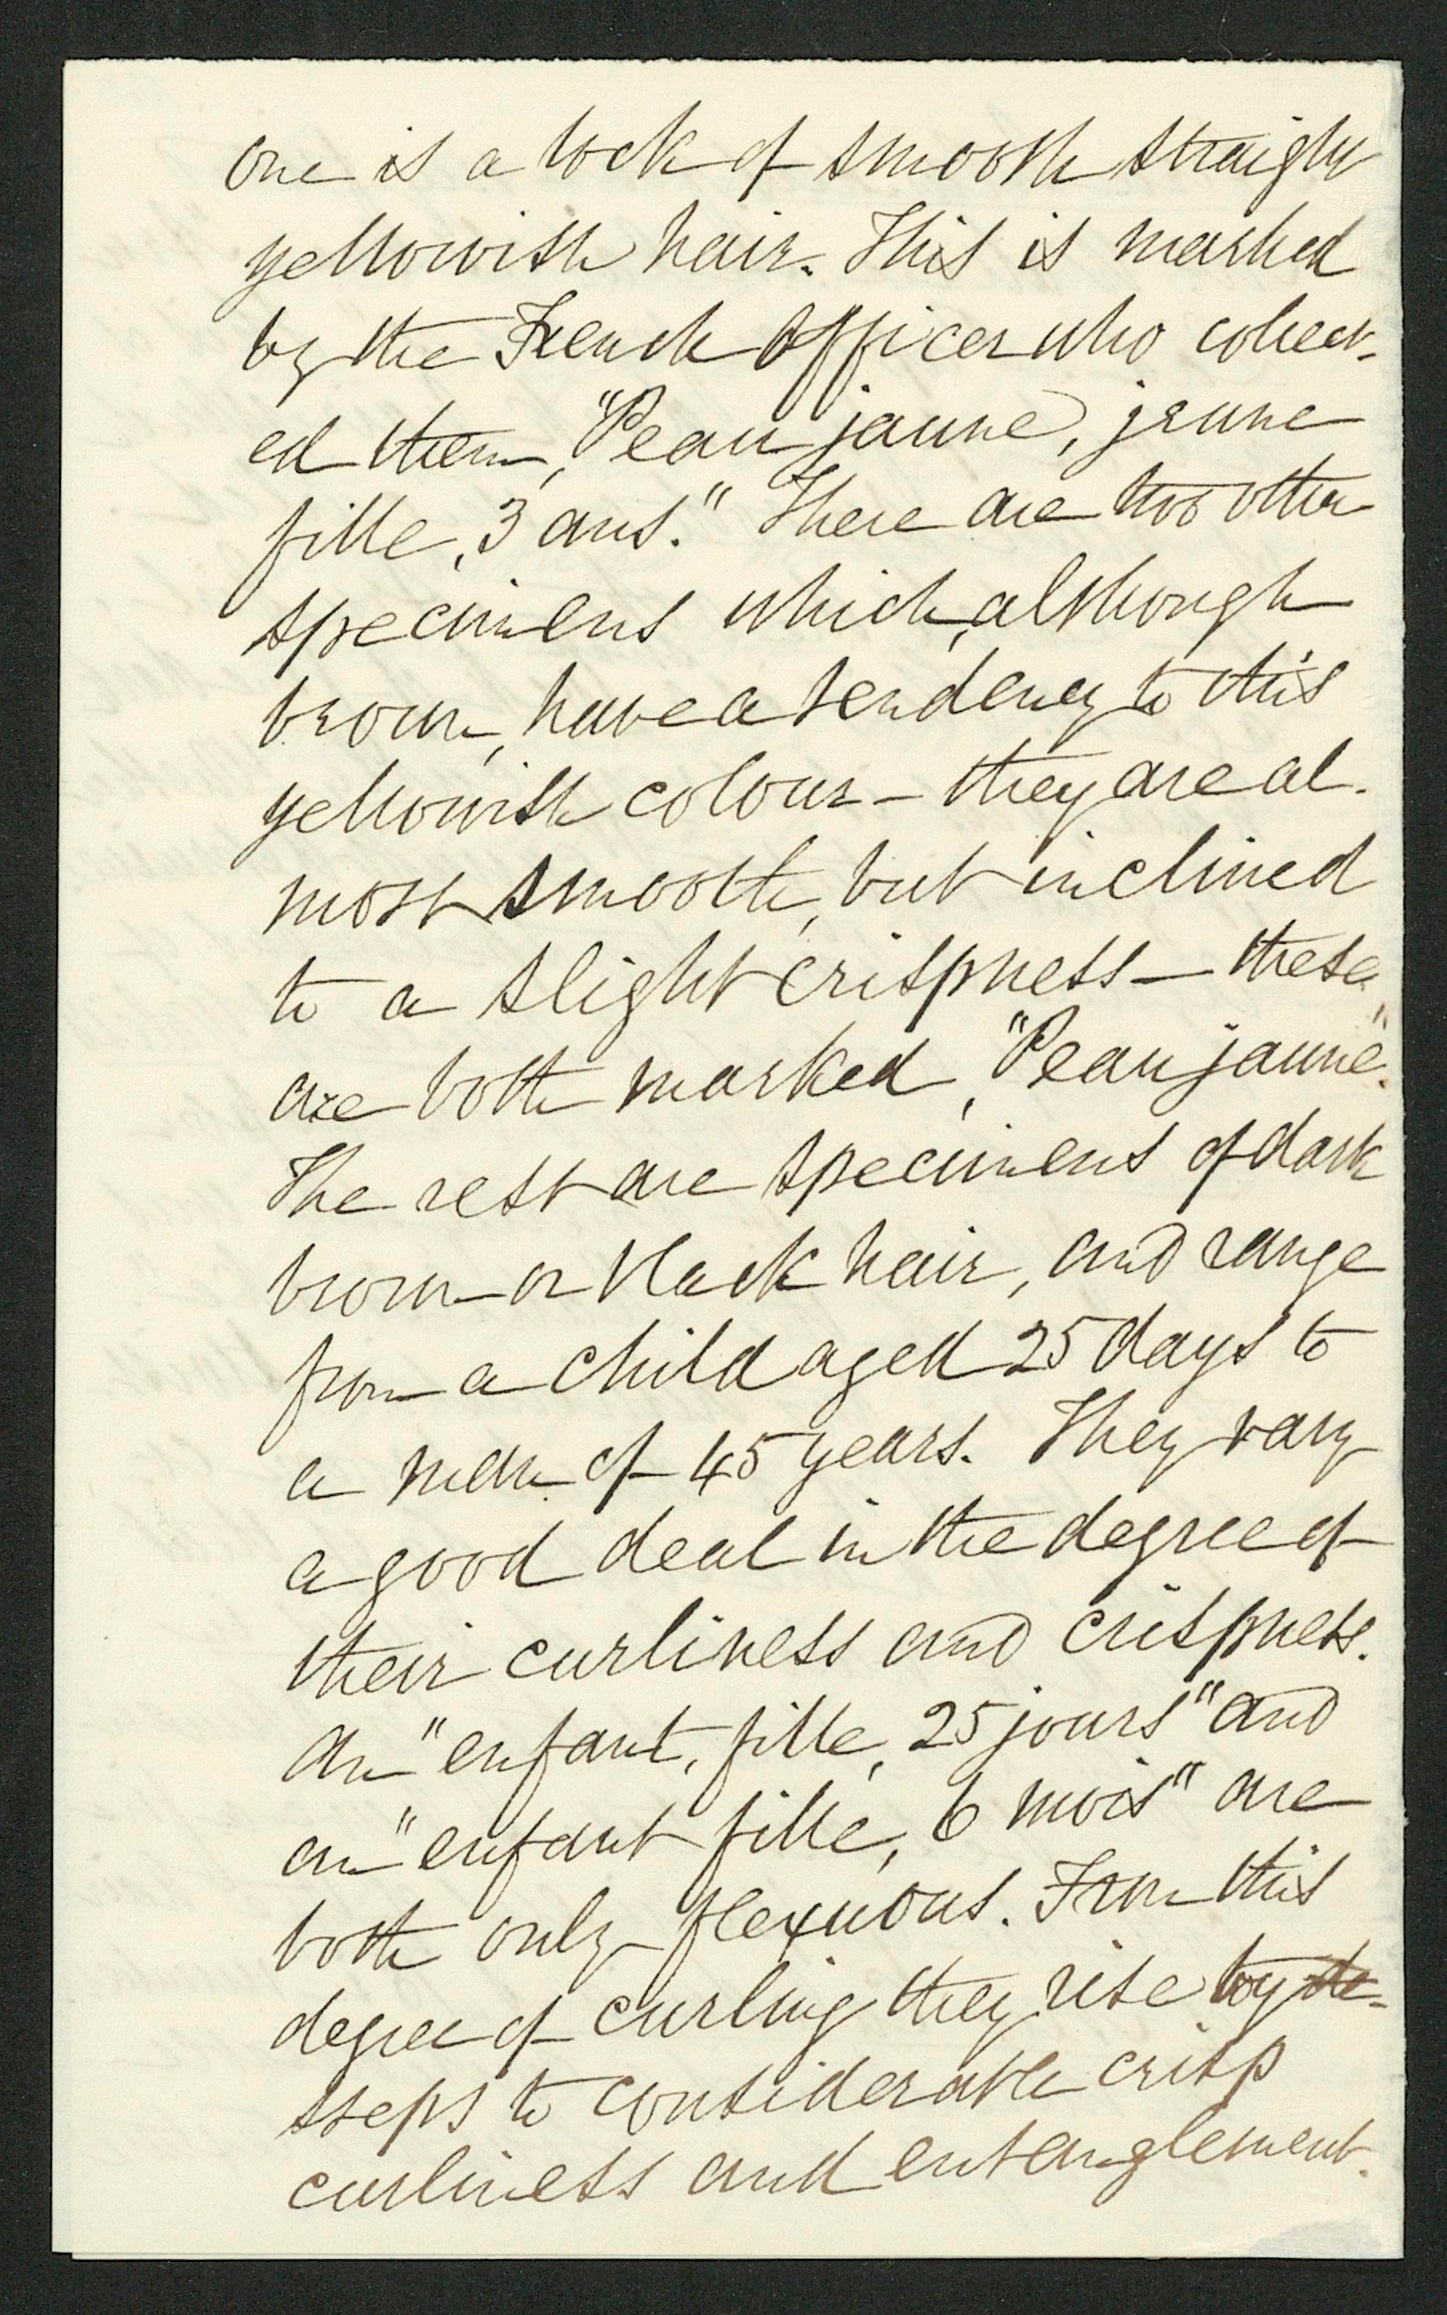 one is a lock of smooth straight
yellowish hair. This is marked
by the French Officer who collect-
ed them, "Peau jaune, jeune
fille, 3 ans." There are two other
specimens which, although
brown, have a tendency to this
yellowish colour - they are al-
most smooth, but inclined
to a slight crispness - these
are both marked, "Peau jaune".
The rest are specimens of dark
brown or black hair, and range
from a child aged 25 days to
a man of 45 years. They vary
a good deal in the degree of
their curliness and crispness.
An "enfant, fille, 25 jours" and
an "enfant fille, 6 mois" are
both only flexuous. From this
degree of curling they rise by de-
steps to considerable crisp
curliness and entanglement.